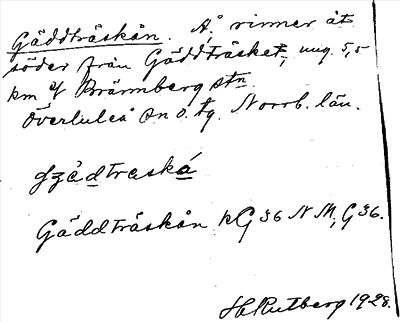 Gäddträskån. Å, rinner åt
söder från Gäddträsket, ung. 5,5
km f Brännberg stn.
Överluleå sn o. tg. Norrb. län.
Gäddträskån KG 36 NM, G 36.
HRutberg 1928.